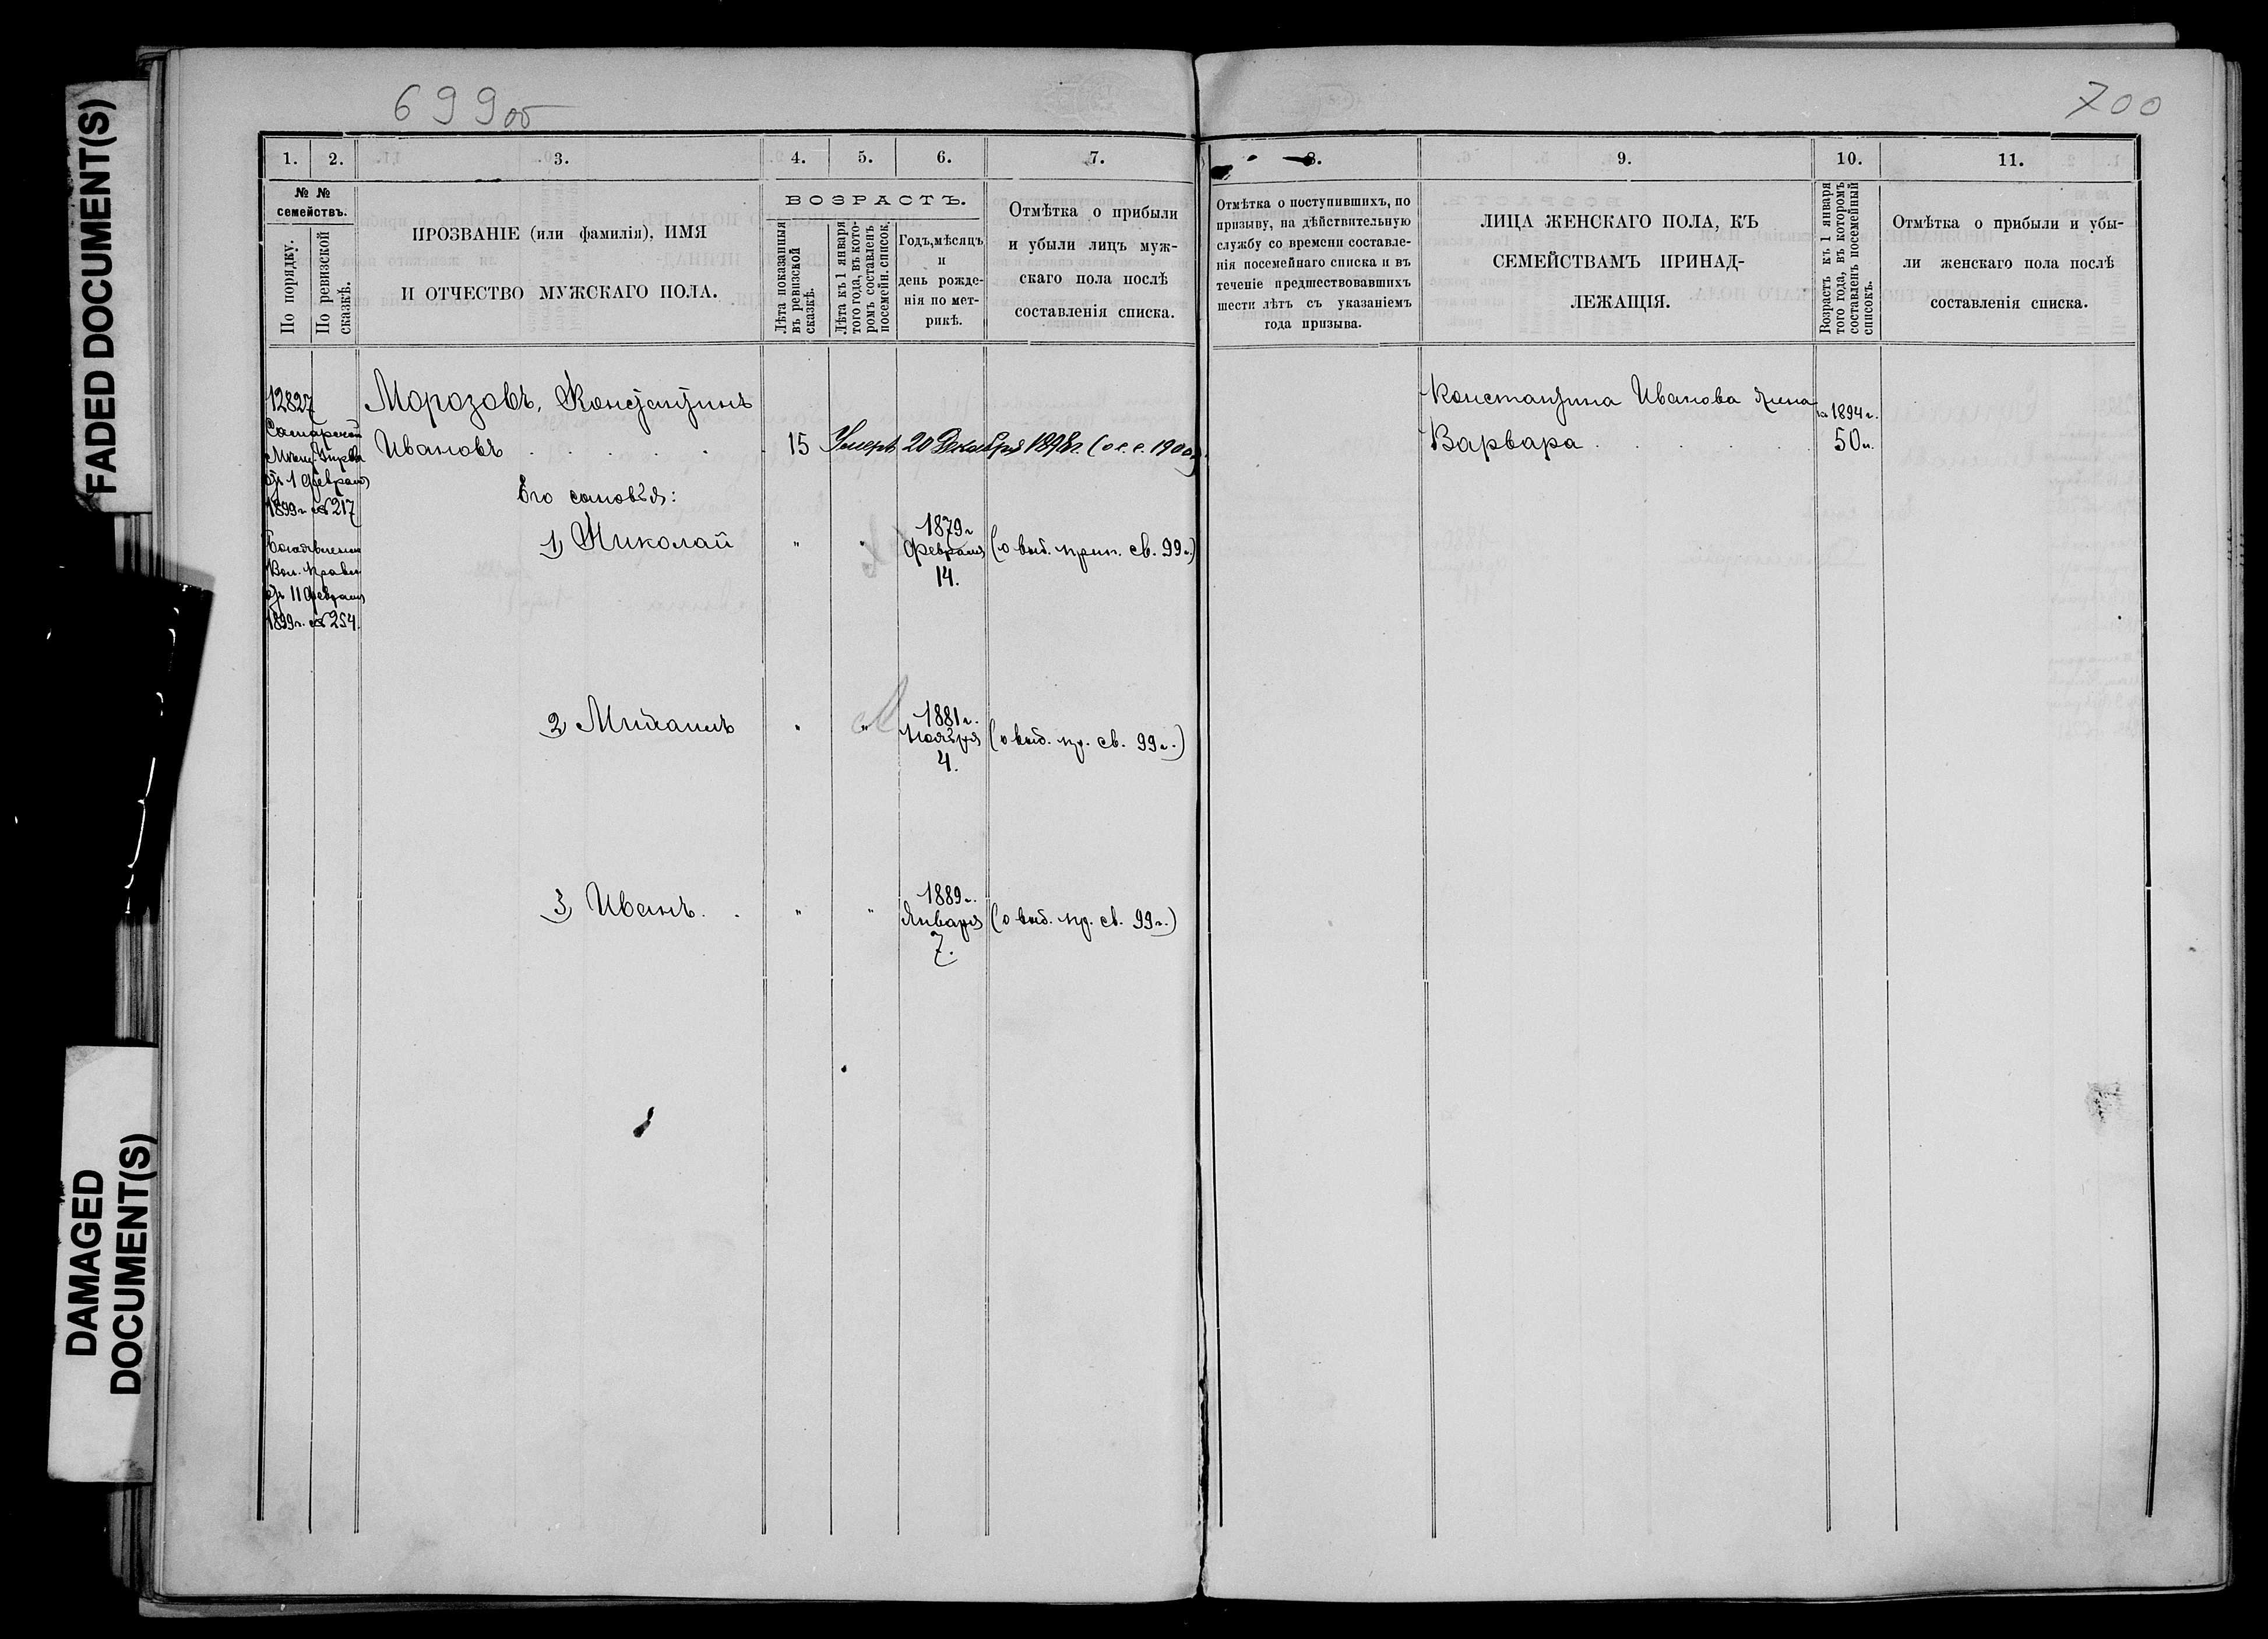 FADED DOCUMENT(S)
DAMAGED
DOCUMENT(S)
699об
700
1. 2. 3. 4. 5. 6. 7.
№ №
семействъ.
По порядку.
По ревизской
сказкѣ.
ПРОЗВАНІЕ (или фамилія), ИМЯ
И ОТЧЕСТВО МУЖСКАГО ПОЛА.
ВОЗРАСТЪ.
Лѣта показанныя
въ ревизской
сказкѣ.
Лѣта къ 1 января
того года, въ кото-
ромъ составленъ
посемейн. список.
Годъ, мѣсяцъ
и
день рожде-
нія по мет-
рикѣ.
Отмѣтка о прибыли
и убыли лицъ муж-
скаго пола послѣ
составленія списка.
8. 9. 10. 11.
Отмѣтка о поступившихъ, по
призыву, на дѣйствительную
службу со времени составле-
нія посемейнаго списка и въ
теченіе предшествовавшихъ
шести лѣтъ съ указаніемъ
года призыва.
ЛИЦА ЖЕНСКАГО ПОЛА, КЪ
СЕМЕЙСТВАМЪ ПРИНАД-
ЛЕЖАЩІЯ.
Возрастъ къ 1 января
того года, въ которомъ
составленъ посемейный
списокъ.
Отмѣтка о прибыли и убы-
ли женскаго пола послѣ
составленія списка.
12827
Самарской
Мѣщ. Управы
отъ 1 февраля
1899 г. № 217
Вол. Правл.
отъ 11 февраля
1899 г. № 254.
Морозовъ, Константинъ
Ивановъ . . . . . . 15 Умеръ 20 Декабря 1898 г. (о с. с. 1900)
Его сыновья:
1) Николай " " 1879 г. февраля 14. (о выд. прип. св. 99 г.)
2) Михаилъ " " 1881 г. Ноября 4. (о выд. пр. св. 99 г.)
3) Иванъ. . " " 1889 г. Января 7. (о выд. пр. св. 99 г.)
Константина Иванова жена на 1894 г.
Варвара . . . . . 50 л.